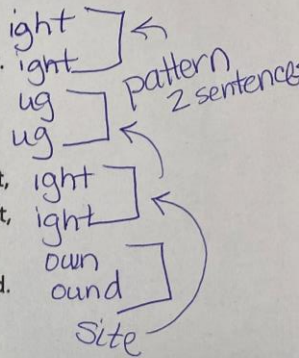 ight
ight
ug
ug
pattern
2 sentences
t, ight
t, ight
own
d. ound
Site